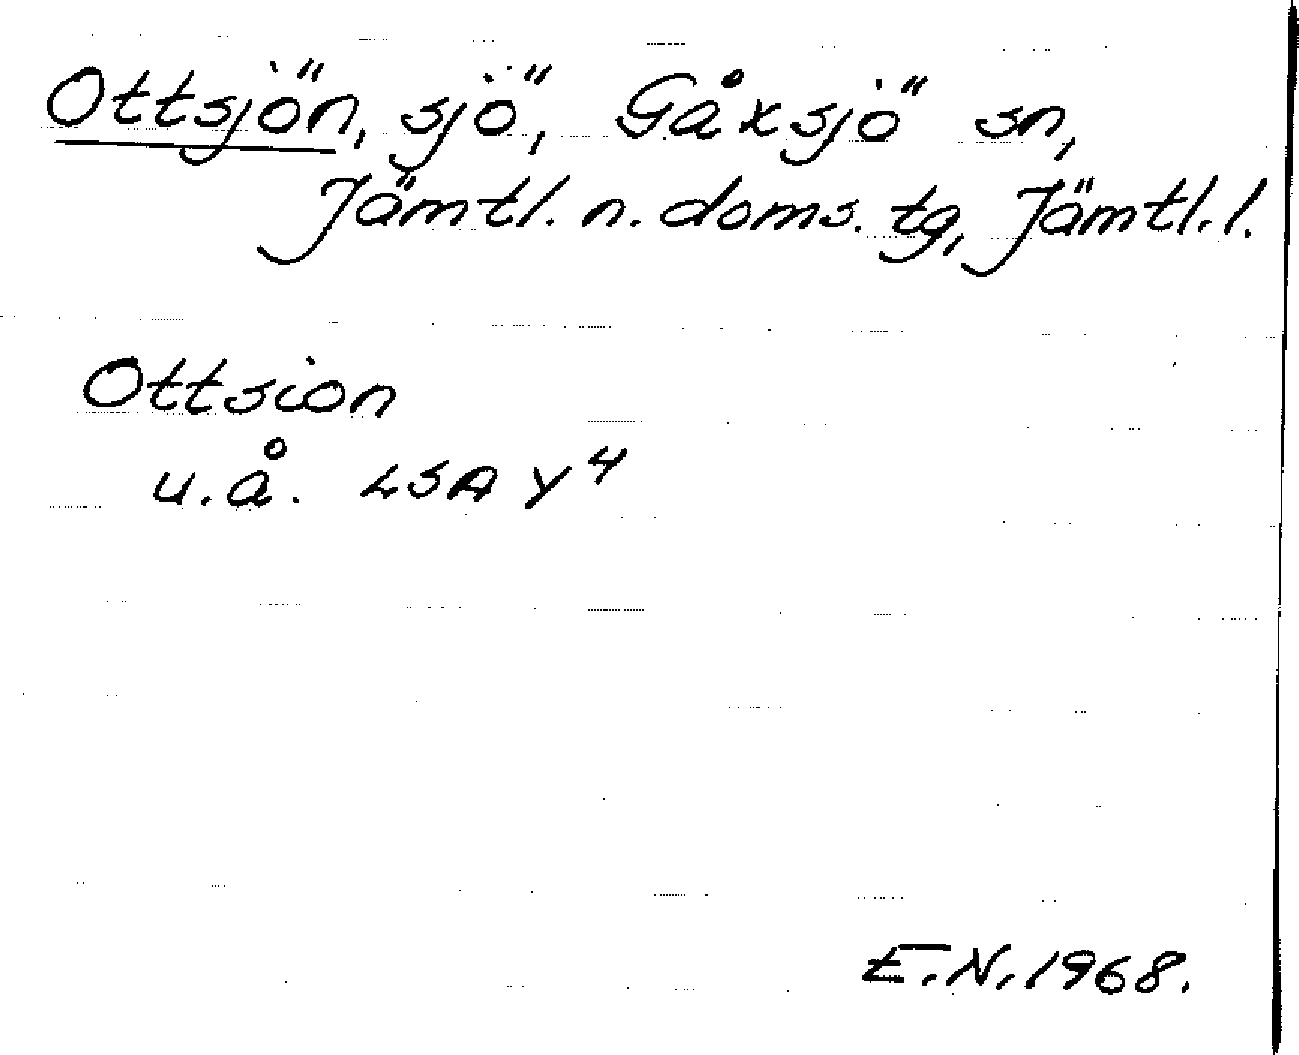 Ottsjön, sjö, Gåxsjö sn,
Jämtl. n. doms. tg, Jämtl. l.
Ottsion
u.å. LSA Y 4
E.N. 1968.